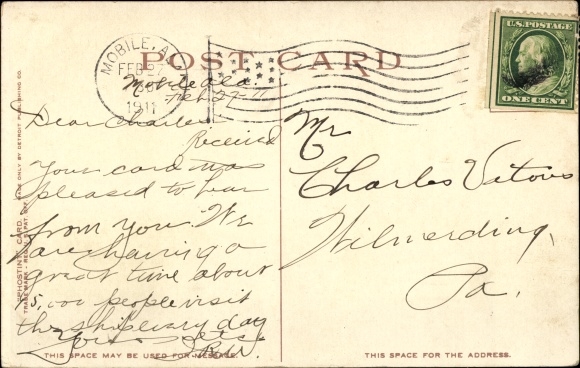 POST CARD
MOBILE, A
FEB 27
1911
U.S. POSTAGE
ONE CENT
Mobile ala
Feb 27 11
Dear Charles
Received
Your card was
pleased to hear
from you. We
are having a
great time about
5,000 people visit
the ship every day
Mr
Charles Vitous
Wilmerding,
Pa.
PHOSTINT CARD.
MADE ONLY BY DETROIT PUBLISHING CO.
THIS SPACE MAY BE USED FOR MESSAGE.
THIS SPACE FOR THE ADDRESS.